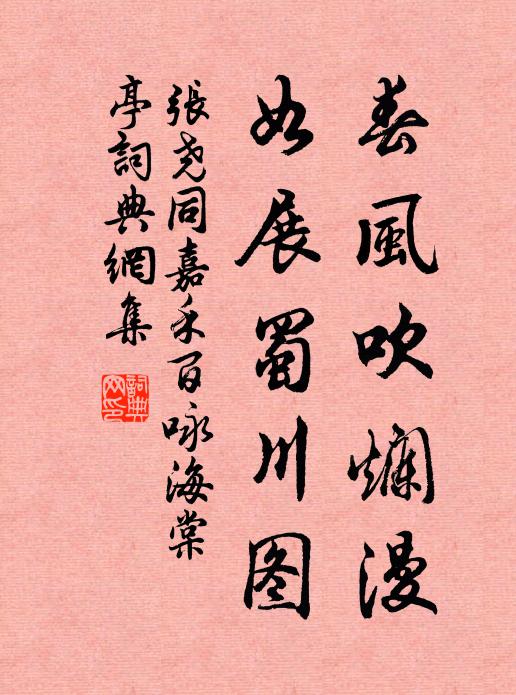 春風吹爛漫
如展蜀川图
張尧同嘉禾百咏海棠
亭詞典網集
詞典网印